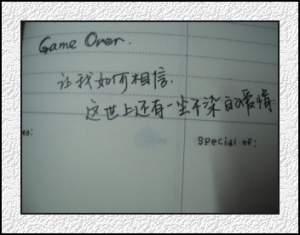 Game Over.
让我如何相信.
这世上还有一尘不染的爱情
Special of: